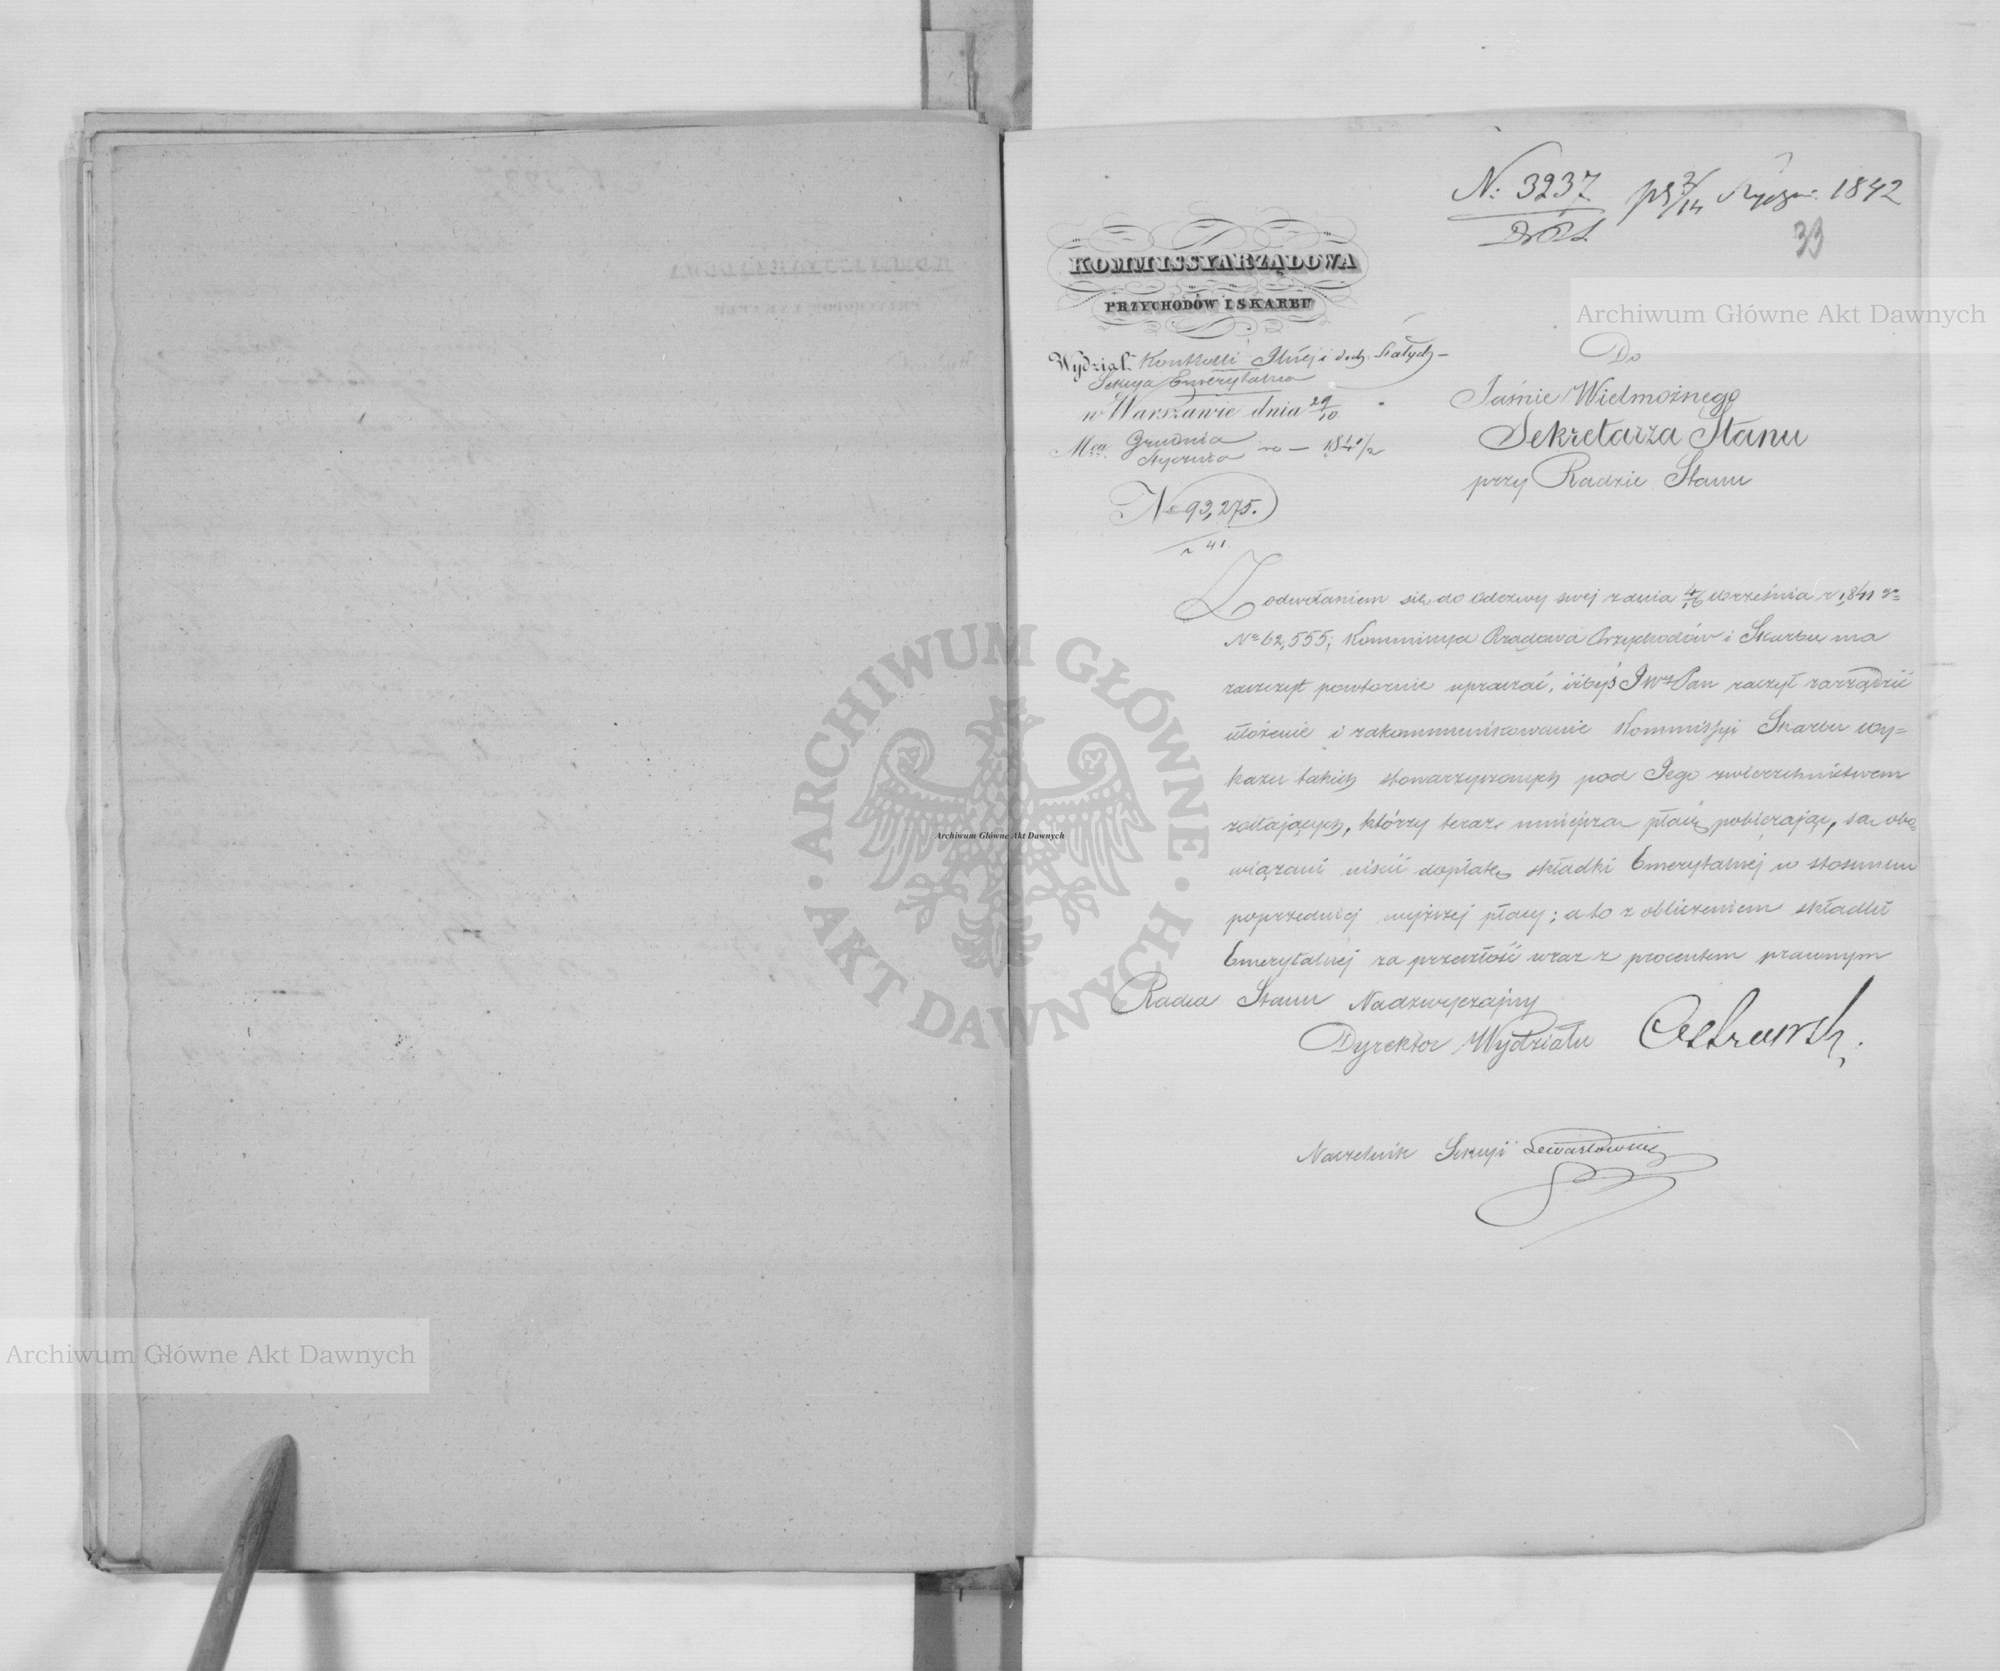 N: 3237
pr 2/14 Stycz: 1842
33
KOMMISSYA RZĄDOWA
PRZYCHODÓW I SKARBU
Wydział Kontrolli Służ: i doch: stałych –
Sekcya Emerytalna
w Warszawie dnia 29/10
Mca Grudnia/Stycznia ro – 1841/2
No 93,275.
r 41
Do
Jaśnie Wielmożnego
Sekretarza Stanu
przy Radzie Stanu
Z odwołaniem się do odezwy swej z dnia 4/16 Września r 1841 r=
No 62,555; Kommissya Rządowa Przychodów i Skarbu ma
zaszczyt powtórnie upraszać, iżbyś JWny Pan raczył zarządzić
ułożenie i zakommunikowanie Kommissyi Skarbu wy=
kazu takich stowarzyszonych pod Jego zwierzchnictwem
zostających, którzy teraz mniejszą płacę pobierając, są obo=
wiązani uiścić dopłatę składki Emerytalnej w stosunku
poprzedniej wyższej płacy; a to z obliczeniem składki
Emerytalnej za przeszłość wraz z procentem prawnym
Radca Stanu Nadzwyczajny
Dyrektor Wydziału
Naczelnik Sekcyi
Archiwum Główne Akt Dawnych
Archiwum Główne Akt Dawnych
Archiwum Główne Akt Dawnych
ARCHIWUM GŁÓWNE · AKT DAWNYCH ·